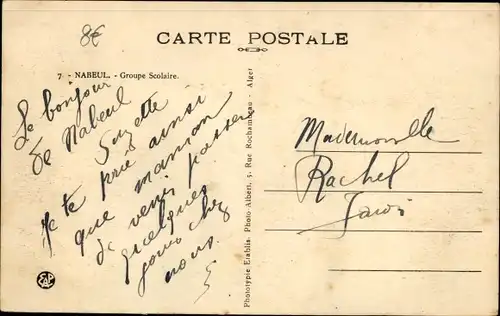 8€
CARTE POSTALE
7. - NABEUL. - Groupe Scolaire.
Le bonjour
de Nabeul
Suzette
Je te prie ainsi
que maman
de venir passer
quelques
jours chez
nous.
Phototypie Etablis. Photo-Albert, 5, Rue Rochambeau - Alger
Mademoiselle
Rachel